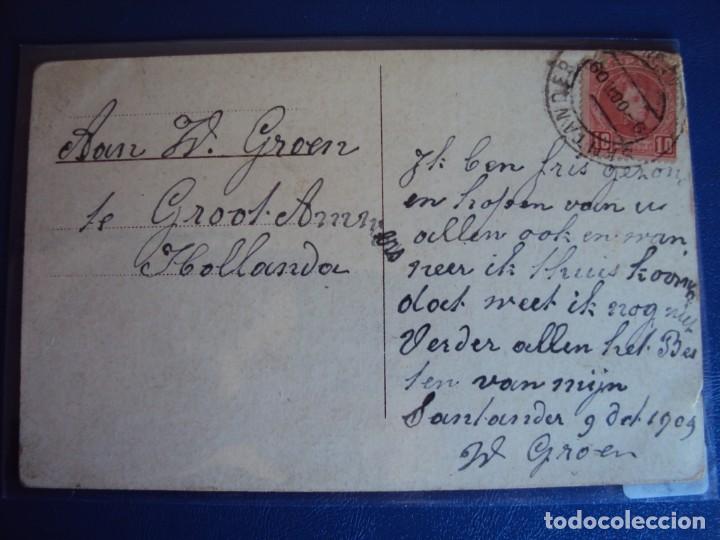 Aan W. Groen
te Groot-Ammers
Hollanda
Ik ben fris gezon
en hopen van u
allen ook en wan
neer ik thuis koomen
dat weet ik nog niet
Verder allen het Bes
ten van mijn
Santander 9 Oct 1909
W Groen
SANTANDER
10 10
todocoleccion
todocoleccion.net